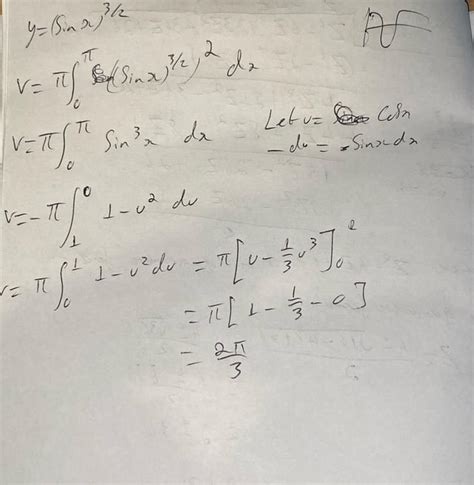 y=(Sin x)^3/2
V= π∫_0^π ((Sin x)^3/2)^2 dx
V= π∫_0^π Sin^3 x dx
Let u= Cosx
-du = Sinx dx
V= -π∫_1^0 1-u^2 du
V= π∫_0^1 1-u^2 du = π[u-1/3 u^3]_0
= π[1-1/3-0]
= 2π/3